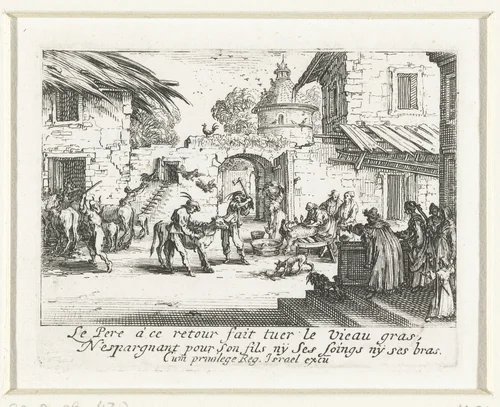 Le Pere à ce retour fait tuer le vieau gras,
N'espargnant pour son fils nÿ ses soings nÿ ses bras.
Cum privilege Reg. Israel excu